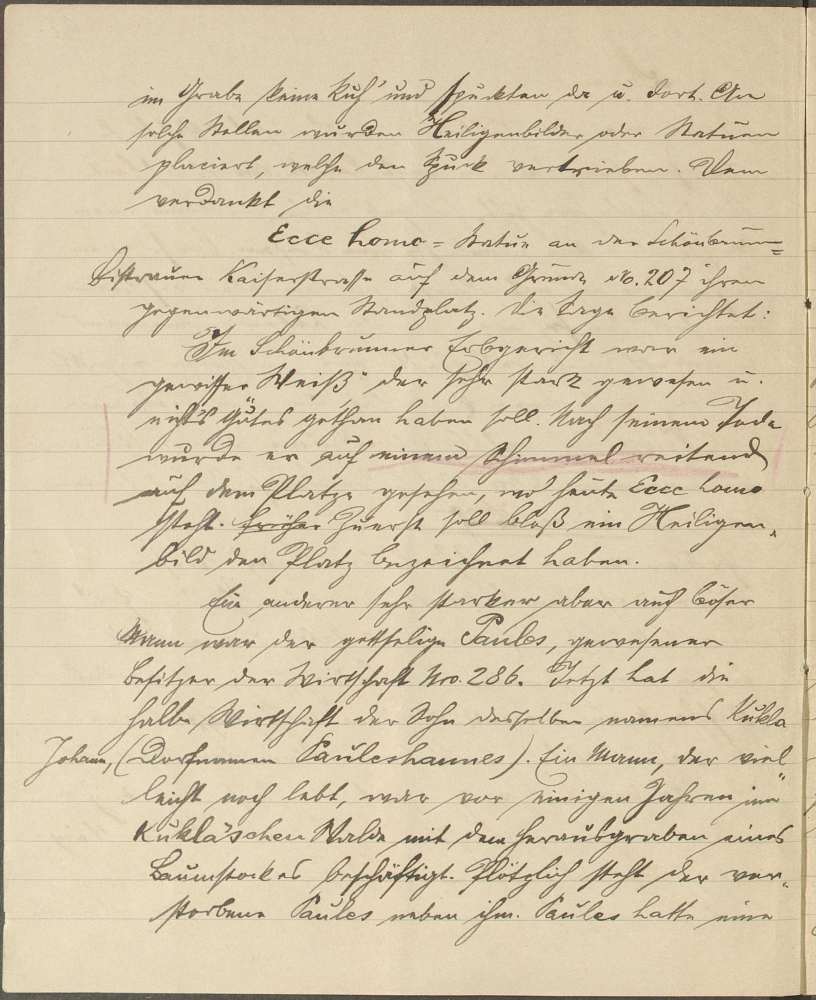 im Grabe keine Ruh' und spuckten da u. dort. An
solche Stellen wurden Heiligenbilder oder Statuen
placiert, welche den Spuck vertrieben. Dem
verdankt die
Ecce homo = Statue an der Schönbrunn=
Bistrauer Kaiserstrasse auf dem Grunde No. 207 ihren
gegenwärtigen Standplatz. Die Sage berichtet:
Im Schönbrunner Erbgericht war ein
gewisser "Weiß" der sehr stark gewesen u.
nichts Gutes gethan haben soll. Nach seinem Tode
wurde er auf einem Schimmel reitend
auf dem Platze gesehen, wo heute Ecce homo
steht. früher Zuerst soll bloß ein Heiligen-
bild den Platz bezeichnet haben.
Ein anderer sehr starker aber auch böser
Mann war der gottselige Paules, gewesener
Besitzer der Wirtschaft Nro. 286. Jetzt hat die
halbe Wirtschaft der Sohn desselben namens Kukla
Johann, (Dorfnamen Pauleshannes). Ein Mann, der viel
leicht noch lebt, war vor einigen Jahren im
Kukla'schen Walde mit dem Herausgraben eines
Baumstockes beschäftigt. Plötzlich steht der ver-
storbene Paules neben ihm. Paules hatte eine